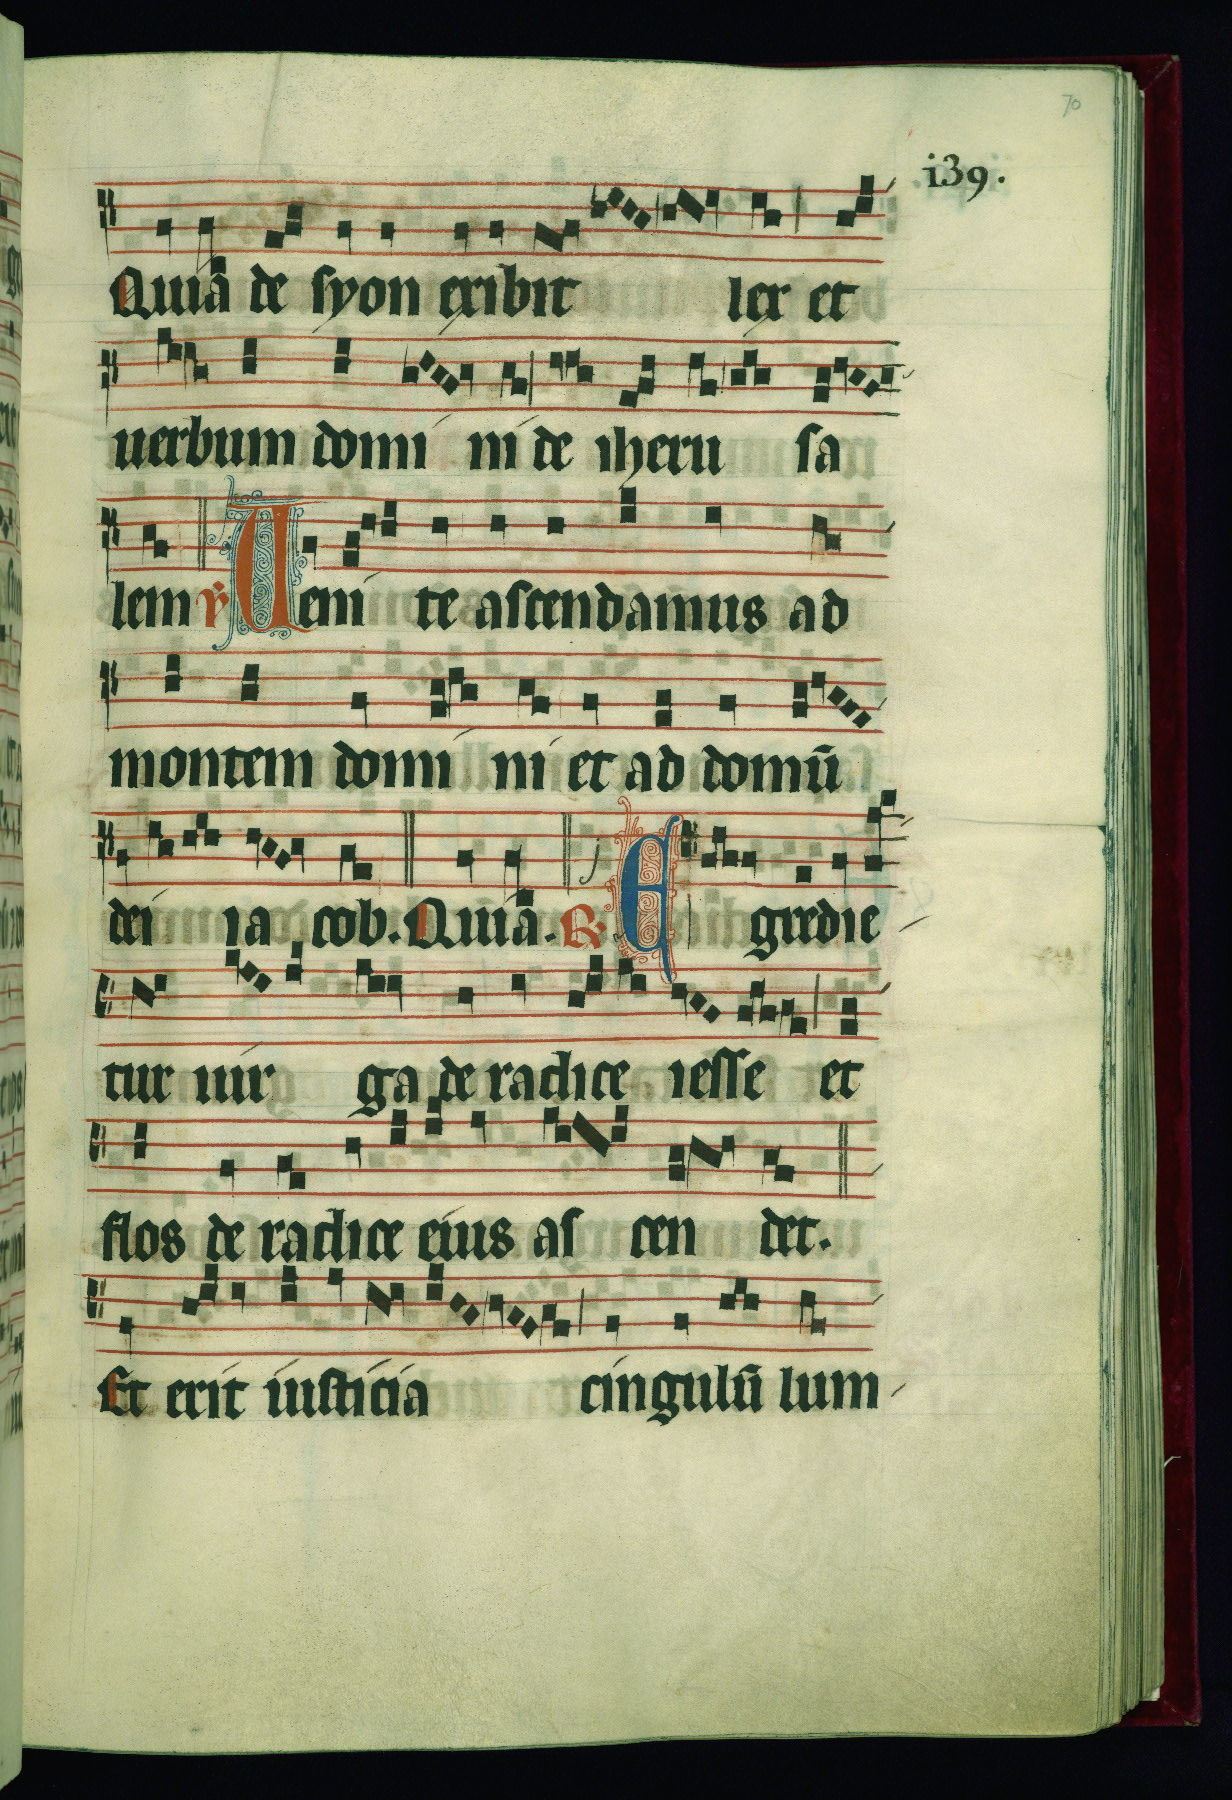 70
139.
Quiā de syon exibit lex et
uerbum domi ni de iheru sa
lem ℣ Ueni te ascendamus ad
montem domi ni et ad domū
dei ia cob. Quiā. ℟ Egredie
tur uir ga de radice iesse et
flos de radice eius as cen det.
Et erit iusticia cingulū lum